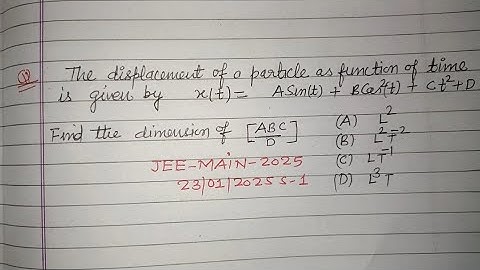 (Q) The displacement of a particle as function of time
is given by x(t) = ASin(t) + BCos²(t) + Ct² + D
Find the dimension of [ABC/D] (A) L²
(B) L²T⁻²
JEE-MAIN-2025 (C) LT⁻¹
23/01/2025 S-1 (D) L³T